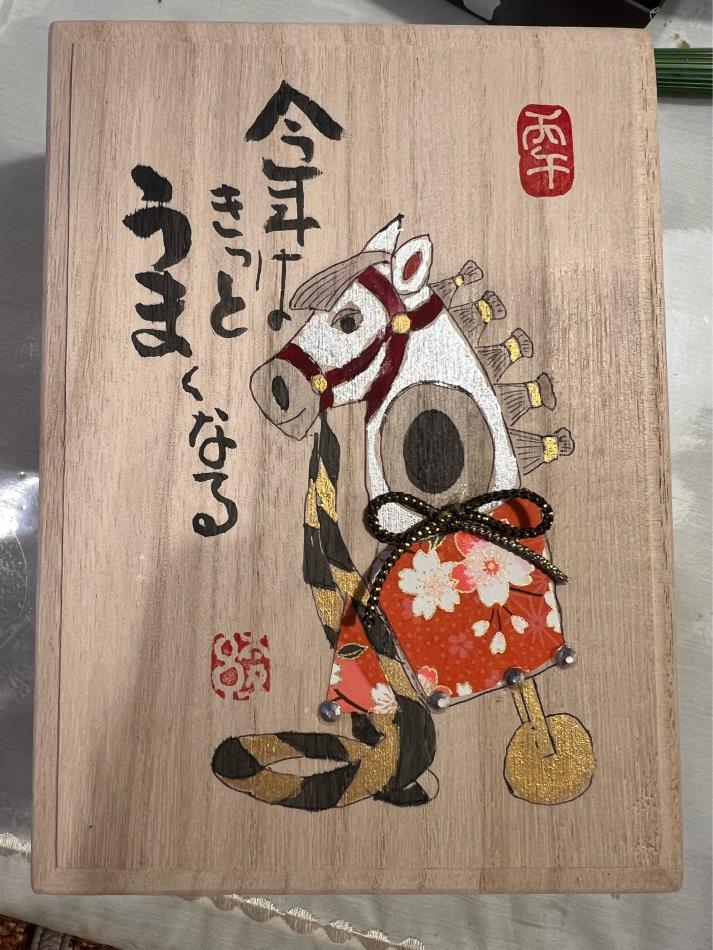 丙午
今年は
きっと
うまくなる